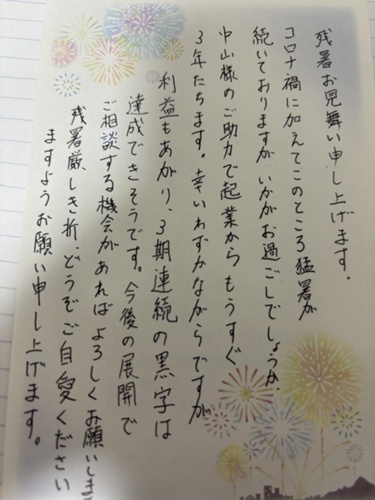 残暑お見舞い申し上げます.
コロナ禍に加えてこのところ猛暑が
続いておりますが、いかがお過ごしでしょうか.
中山様のご助力で起業からもうすぐ
3年たちます。幸いわずかながらですが
利益もあがり、3期連続の黒字は
達成できそうです。今後の展開で
ご相談する機会があればよろしくお願いしま
残暑厳しき折、どうぞご自愛ください
ますようお願い申し上げます。